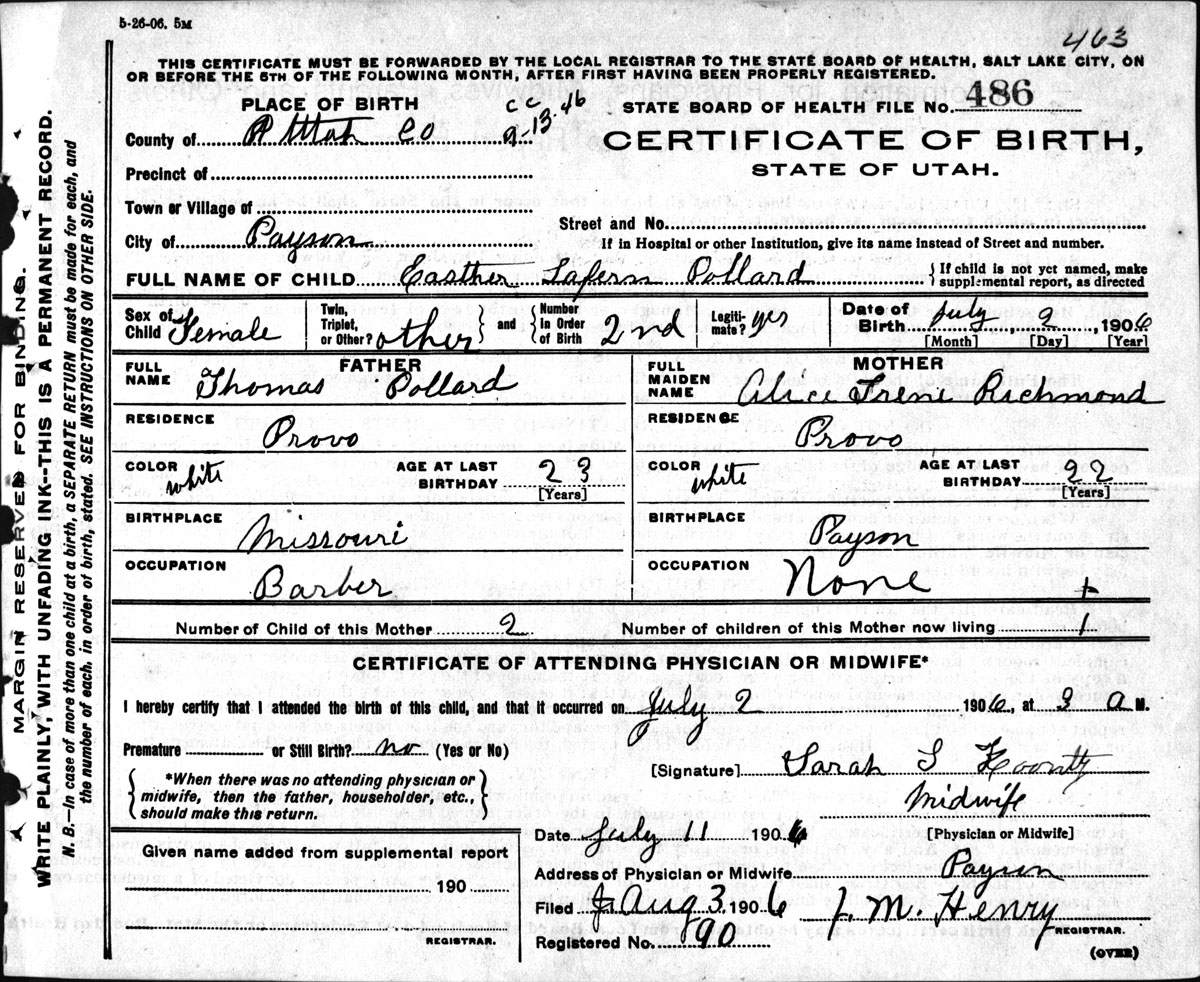 5-26-06. 5M
463
THIS CERTIFICATE MUST BE FORWARDED BY THE LOCAL REGISTRAR TO THE STATE BOARD OF HEALTH, SALT LAKE CITY, ON
OR BEFORE THE 5TH OF THE FOLLOWING MONTH, AFTER FIRST HAVING BEEN PROPERLY REGISTERED.
PLACE OF BIRTH
CC
9-13-46
STATE BOARD OF HEALTH FILE NO. 486
County of Utah Co
CERTIFICATE OF BIRTH,
STATE OF UTAH.
Precinct of
Town or Village of
Street and No.
City of Payson
If in Hospital or other Institution, give its name instead of Street and number.
FULL NAME OF CHILD Easther Lafern Pollard { If child is not yet named, make
supplemental report, as directed
Sex of Child Female
Twin, Triplet, or Other? other
and
Number in Order of Birth 2nd
Legiti-mate? yes
Date of Birth July 2, 1906
[Month] [Day] [Year]
FATHER
FULL NAME Thomas Pollard
MOTHER
FULL MAIDEN NAME Alice Irene Richmond
RESIDENCE Provo
RESIDENCE Provo
COLOR white
AGE AT LAST BIRTHDAY 23
[Years]
COLOR white
AGE AT LAST BIRTHDAY 22
[Years]
BIRTHPLACE Missouri
BIRTHPLACE Payson
OCCUPATION Barber
OCCUPATION None
Number of Child of this Mother 2
Number of children of this Mother now living 1
CERTIFICATE OF ATTENDING PHYSICIAN OR MIDWIFE*
I hereby certify that I attended the birth of this child, and that it occurred on July 2 1906, at 3 a M.
Premature or Still Birth? no (Yes or No)
{ *When there was no attending physician or
midwife, then the father, householder, etc.,
should make this return. }
[Signature] Sarah S Koontz
Midwife
[Physician or Midwife]
Date July 11 1906
Given name added from supplemental report
190
REGISTRAR.
Address of Physician or Midwife Payson
Filed Aug 3 1906 J. M. Henry
REGISTRAR.
Registered No. 90
(OVER)
MARGIN RESERVED FOR BINDING.
WRITE PLAINLY, WITH UNFADING INK--THIS IS A PERMANENT RECORD.
N. B.—In case of more than one child at a birth, a SEPARATE RETURN must be made for each, and
the number of each, in order of birth, stated. SEE INSTRUCTIONS ON OTHER SIDE.